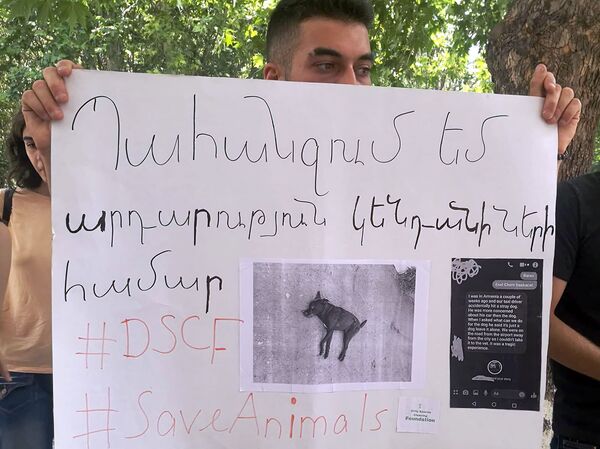 Պահանջում եմ
արդարություն կենդանիների
համար
#DSCF
#SaveAnimals
I was in Armenia a couple of
weeks ago and our taxi driver
accidentally hit a stray dog.
He was more concerned
about his car then the dog.
When I asked what can we do
for the dog he said it's just a
dog leave it alone. We were on
the road from the airport away
from the city so I couldn't take
it to the vet. It was a tragic
experience.
Aa
Foundation